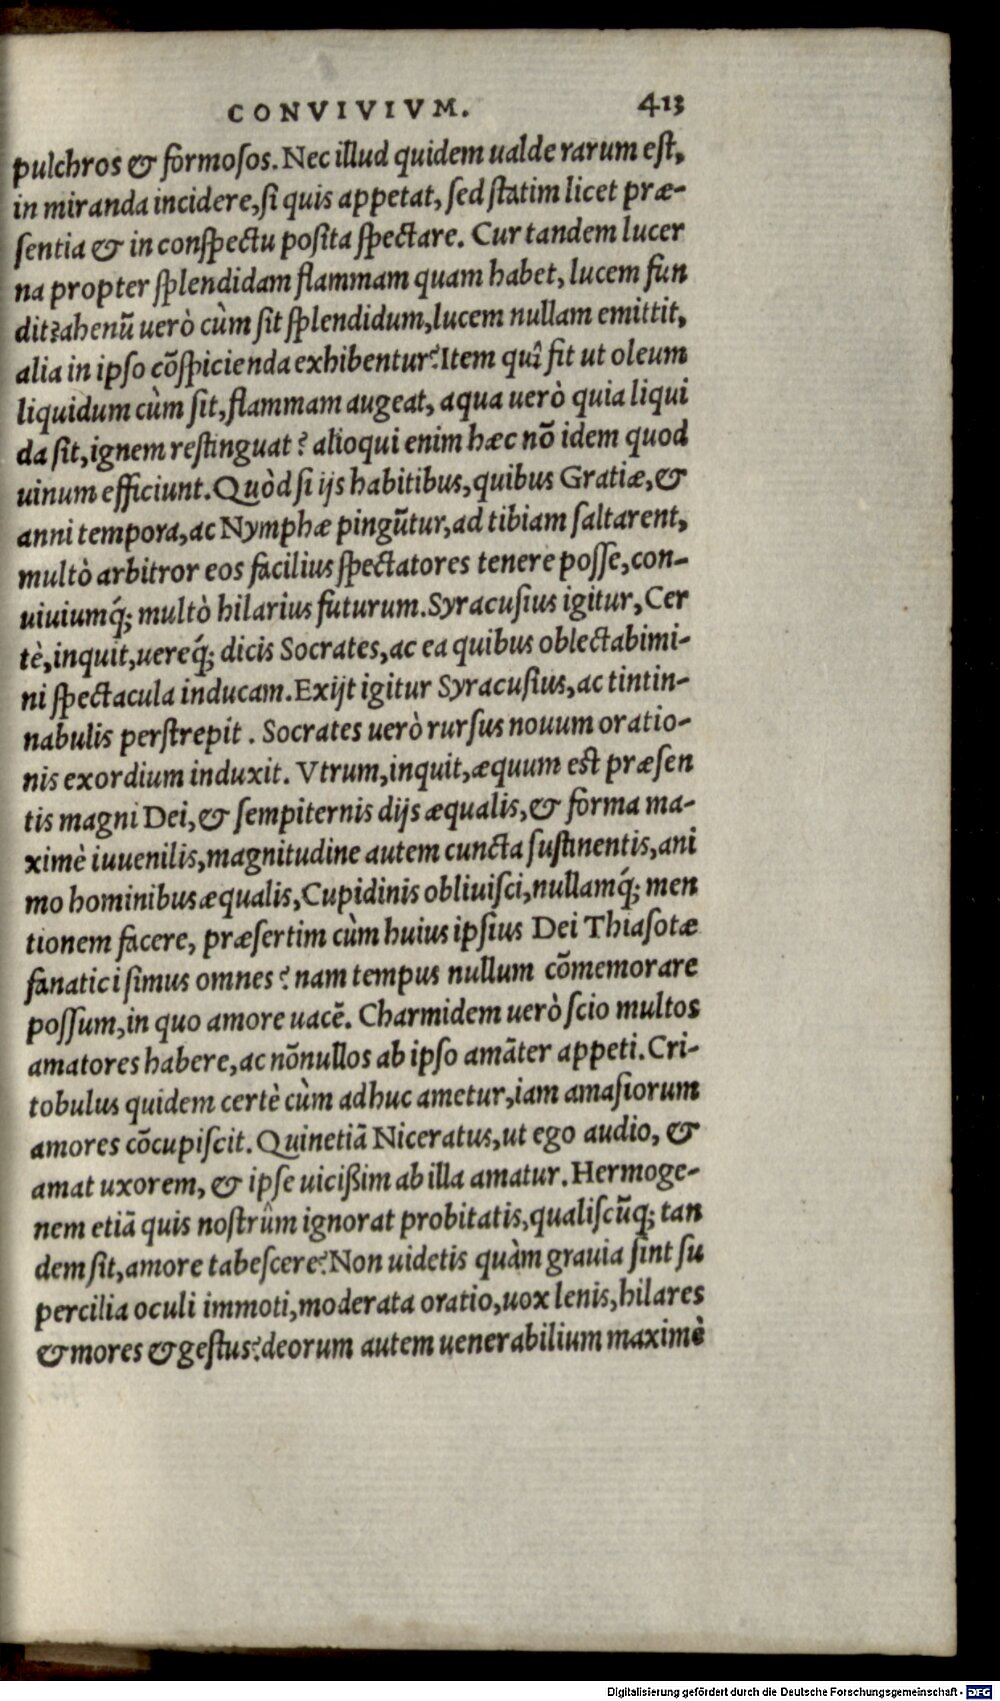 CONVIVIVM. 413
pulchros & formosos. Nec illud quidem ualde rarum est,
in miranda incidere, si quis appetat, sed statim licet præ-
sentia & in conspectu posita spectare. Cur tandem lucer
na propter splendidam flammam quam habet, lucem fun
dit? ahenũ uerò cùm sit splendidum, lucem nullam emittit,
alia in ipso cõspicienda exhibentur? Item quî fit ut oleum
liquidum cùm sit, flammam augeat, aqua uerò quia liqui
da sit, ignem restinguat? alioqui enim hæc nõ idem quod
uinum efficiunt. Quòd si ijs habitibus, quibus Gratiæ, &
anni tempora, ac Nymphæ pingũtur, ad tibiam saltarent,
multò arbitror eos facilius spectatores tenere posse, con-
uiuiumq́; multò hilarius futurum. Syracusius igitur, Cer
tè, inquit, uereq́; dicis Socrates, ac ea quibus oblectabimi-
ni spectacula inducam. Exijt igitur Syracusius, ac tintin-
nabulis perstrepit. Socrates uerò rursus nouum oratio-
nis exordium induxit. Vtrum, inquit, æquum est præsen
tis magni Dei, & sempiternis dijs æqualis, & forma ma-
ximè iuuenilis, magnitudine autem cuncta sustinentis, ani
mo hominibus æqualis, Cupidinis obliuisci, nullamq́; men
tionem facere, præsertim cùm huius ipsius Dei Thiasotæ
fanatici simus omnes? nam tempus nullum cõmemorare
possum, in quo amore uacẽ. Charmidem uerò scio multos
amatores habere, ac nõnullos ab ipso amãter appeti. Cri-
tobulus quidem certè cùm adhuc ametur, iam amasiorum
amores cõcupiscit. Quinetiã Niceratus, ut ego audio, &
amat uxorem, & ipse uicißim ab illa amatur. Hermoge-
nem etiã quis nostrûm ignorat probitatis, qualiscũq; tan
dem sit, amore tabescere? Non uidetis quàm grauia sint su
percilia oculi immoti, moderata oratio, uox lenis, hilares
& mores & gestus? deorum autem uenerabilium maximè
Digitalisierung gefördert durch die Deutsche Forschungsgemeinschaft - DFG